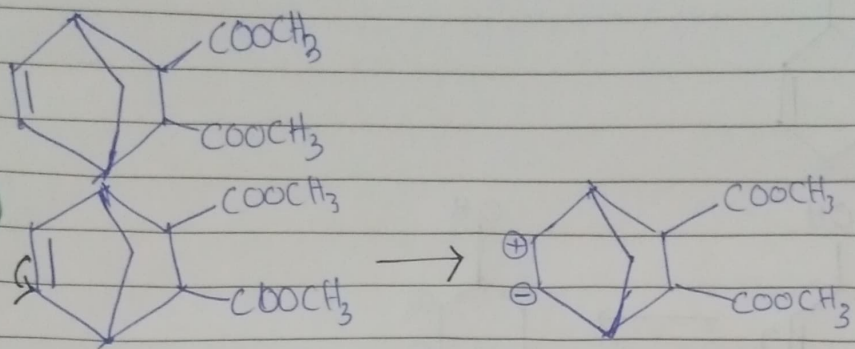 COOCH3
COOCH3
COOCH3
COOCH3
⊕
⊖
COOCH3
COOCH3